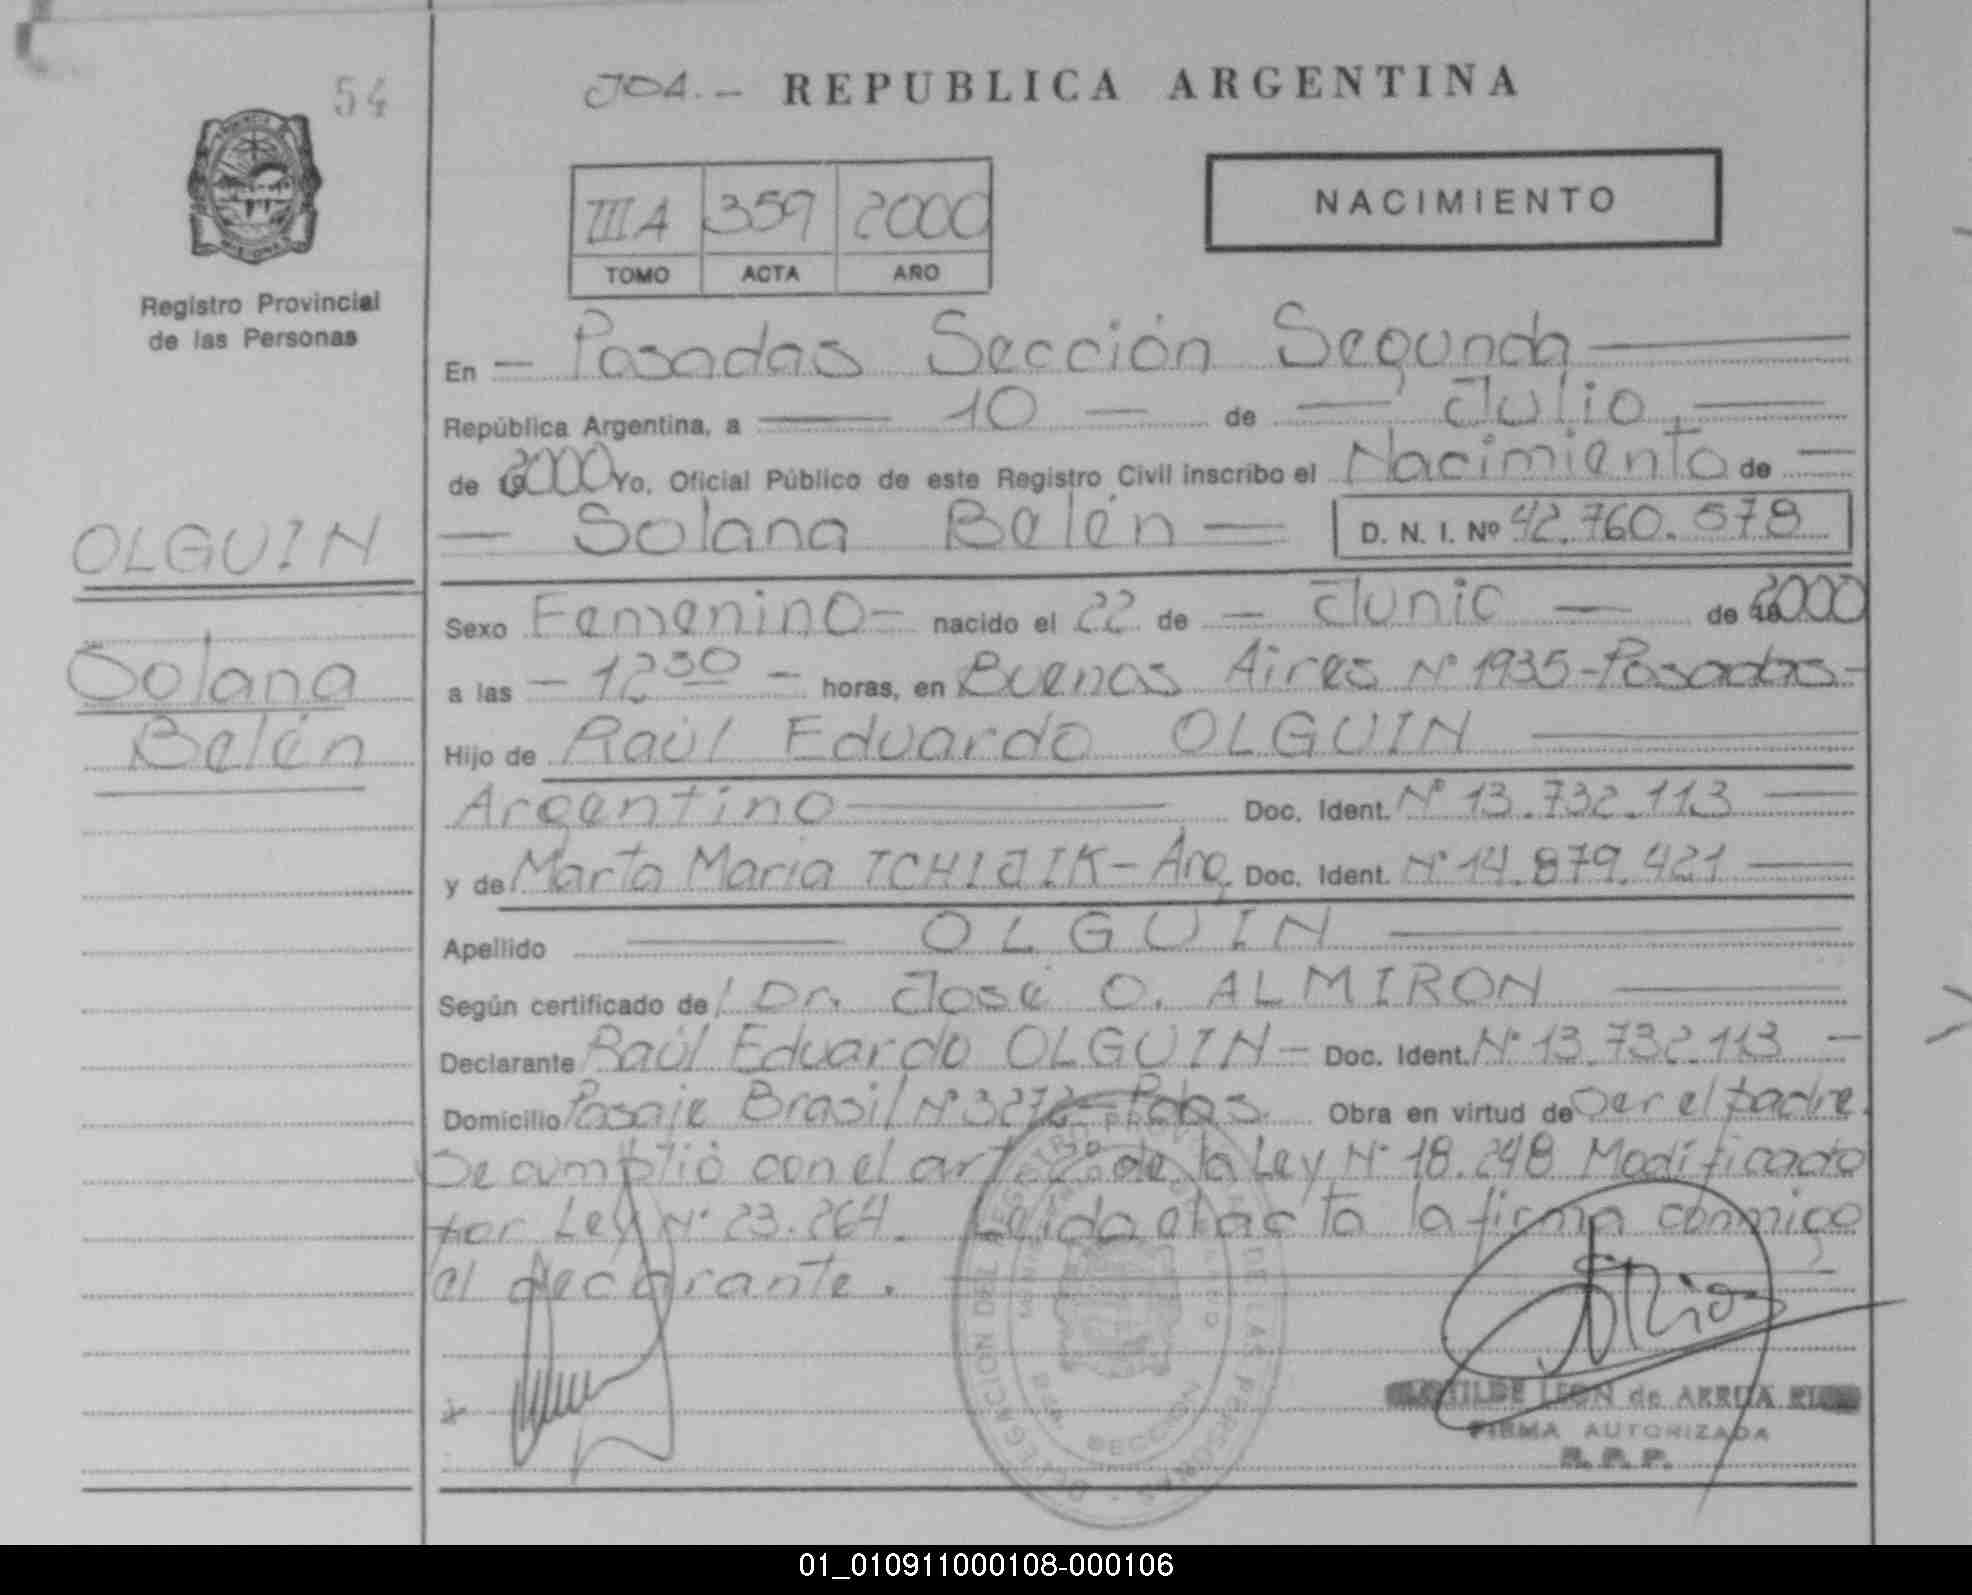 54
JOA.- REPUBLICA ARGENTINA
NACIMIENTO
IIIA 359 2000
TOMO ACTA AÑO
Registro Provincial
de las Personas
En — Posadas Sección Segunda —
República Argentina, a — 10 — de — Julio, —
de 2000 Yo, Oficial Público de este Registro Civil inscribo el Nacimiento de —
— Solana Belén — D. N. I. Nº 42.760.578
OLGUIN
Solana
Belén
Sexo Femenino — nacido el 22 de — Junio — de 2000
a las — 12 30 — horas, en Buenos Aires Nº 1935-Posadas-
Hijo de Raúl Eduardo OLGUIN —
Argentino — Doc. Ident. Nº 13.732.113 —
y de Marta Maria TCHIJIK - Arg. Doc. Ident. Nº 14.879.421 —
Apellido — OLGUIN —
Según certificado del Dr. José O. ALMIRON —
Declarante Raúl Eduardo OLGUIN — Doc. Ident. Nº 13.732.113 —
Domicilio Pasaje Brasil Nº 3272-Pdas. Obra en virtud de Ser el padre.
Se cumplió con el art de la Ley Nº 18.248 Modificado
por Ley Nº 23.264. Leida el acta la firma conmigo
el declarante.
DELEGACION DEL REGISTRO PROVINCIAL DE LAS PERSONAS
SECCION
LEON de ARRUA
FIRMA AUTORIZADA
R. P. P.
01_010911000108-000106